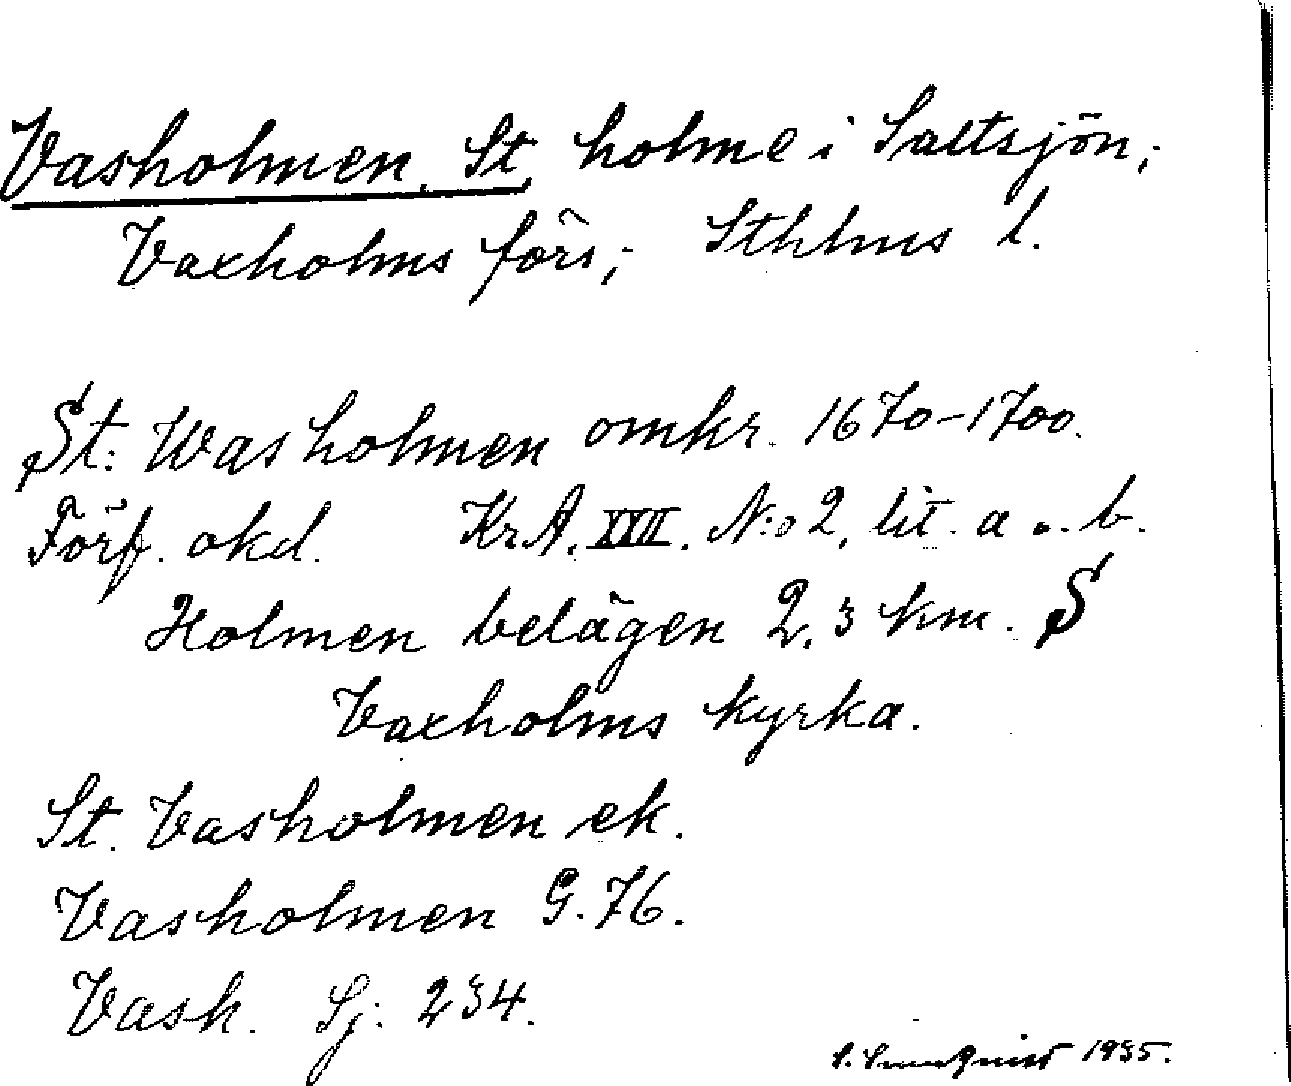 Vasholmen, St, holme i Saltsjön,
Vaxholms förs, Sthlms l.
St: Washolmen omkr. 1670-1700.
Förf. okd. Kr.A. XVII. N:o 2, lit. a o. b.
Holmen belägen 2,3 km. S
Vaxholms kyrka.
St. Vasholmen ek.
Vasholmen G. 76.
Vash. Sj. 234.
1935.